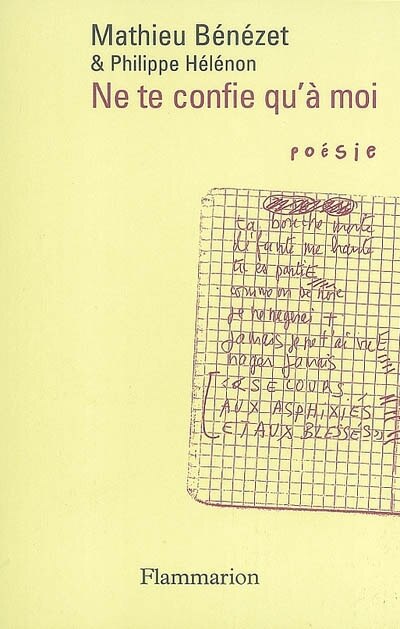 Mathieu Bénézet
& Philippe Hélénon
Ne te confie qu'à moi
poésie
ta bouche morte
défante me hante
tu es partiE
comme on se noie
je ne nageai +
jamais je ne t'ai vuE
nager jamais
<<SECOURS
AUX ASPHIXIÉS
ET AUX BLESSÉS>>
Flammarion